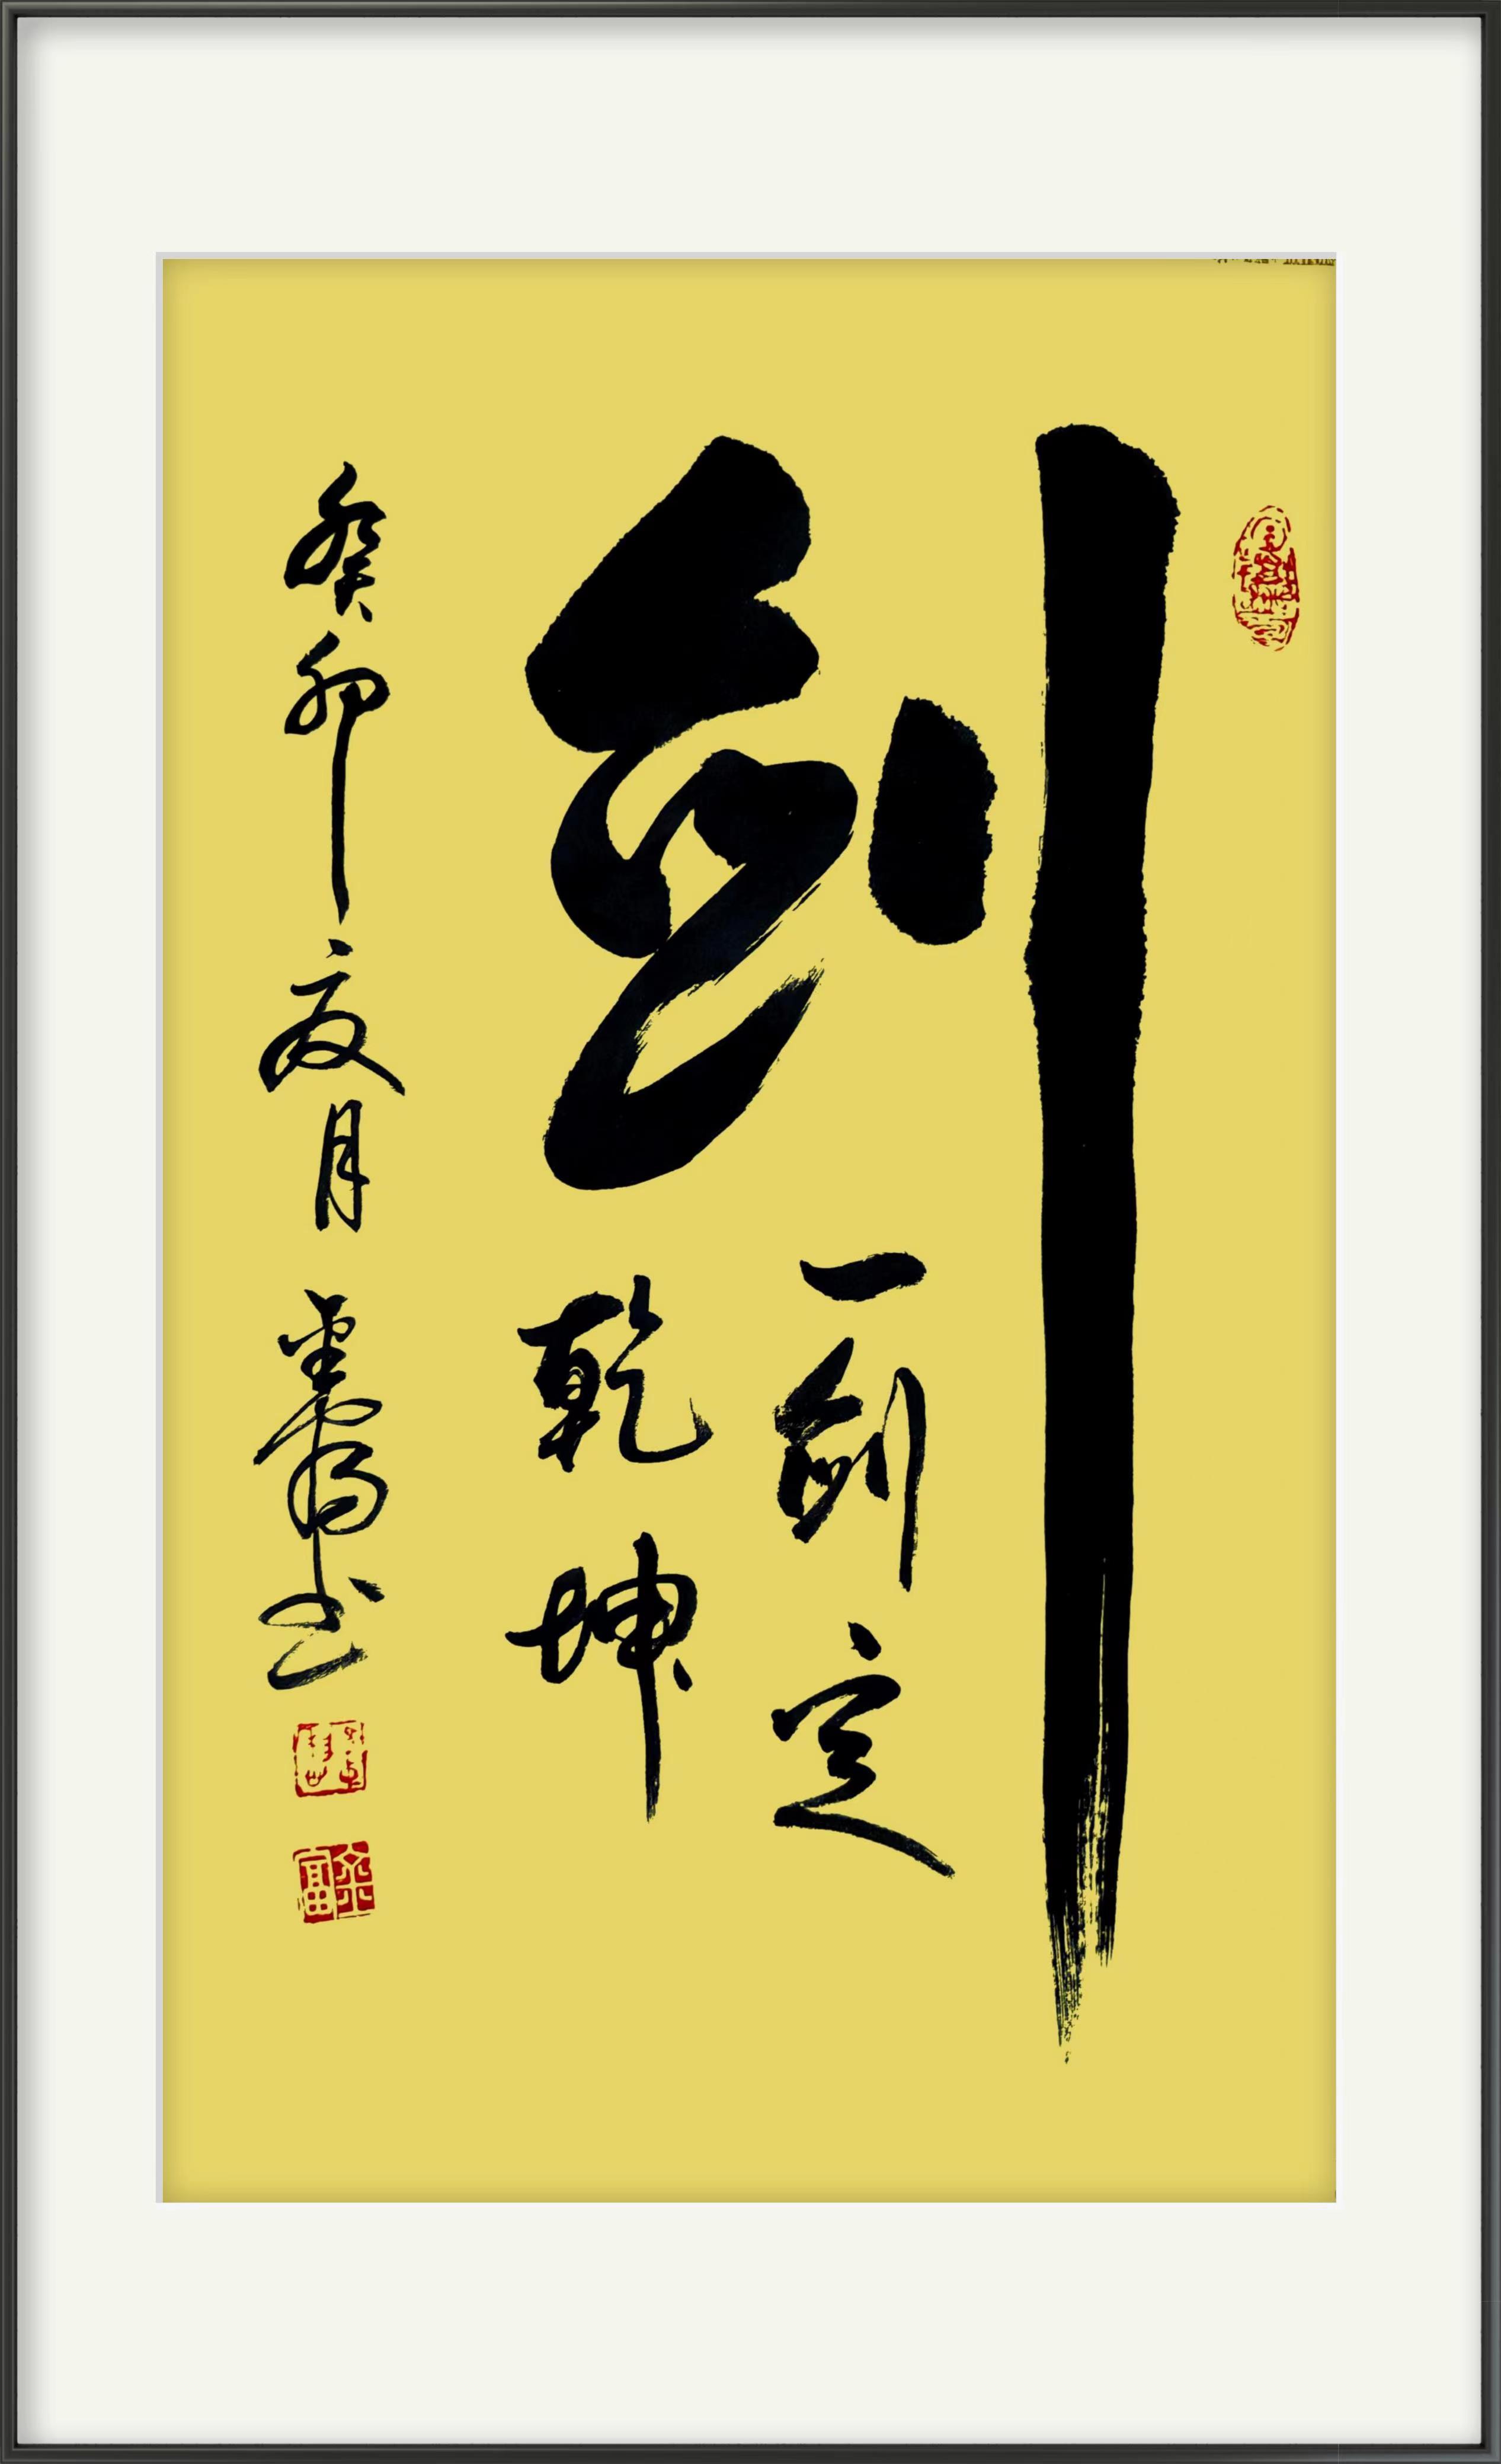 劍
一劍定
乾坤
癸卯夏月 书